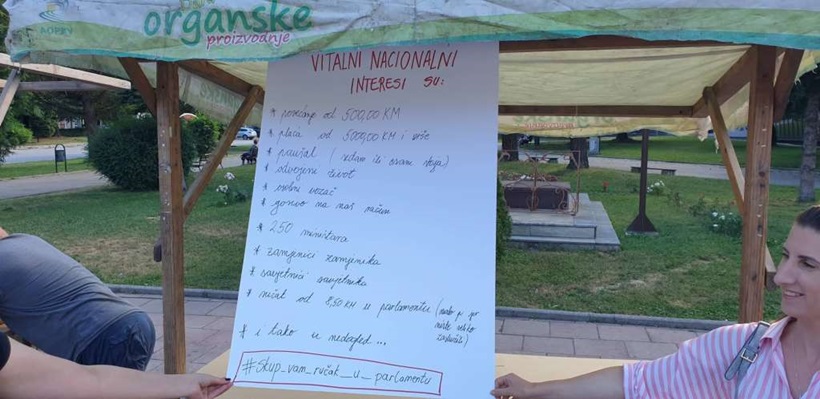 AOPRV
organske
proizvodnje
VITALNI NACIONALNI
INTERESI SU:
* povećanje od 500,00 KM
* plaća od 5000,00 KM i više
* paušal (sedam ili osam hiljada)
* odvojeni život
* osobni vozač
* gorivo na naš račun
* 250 ministara
* zamjenici zamjenika
* savjetnici savjetnika
* ručak od 8,50 KM u parlamentu (malo
zaslužili)
* i tako u nedogled...
#Skup_vam_ručak_u_parlamentu